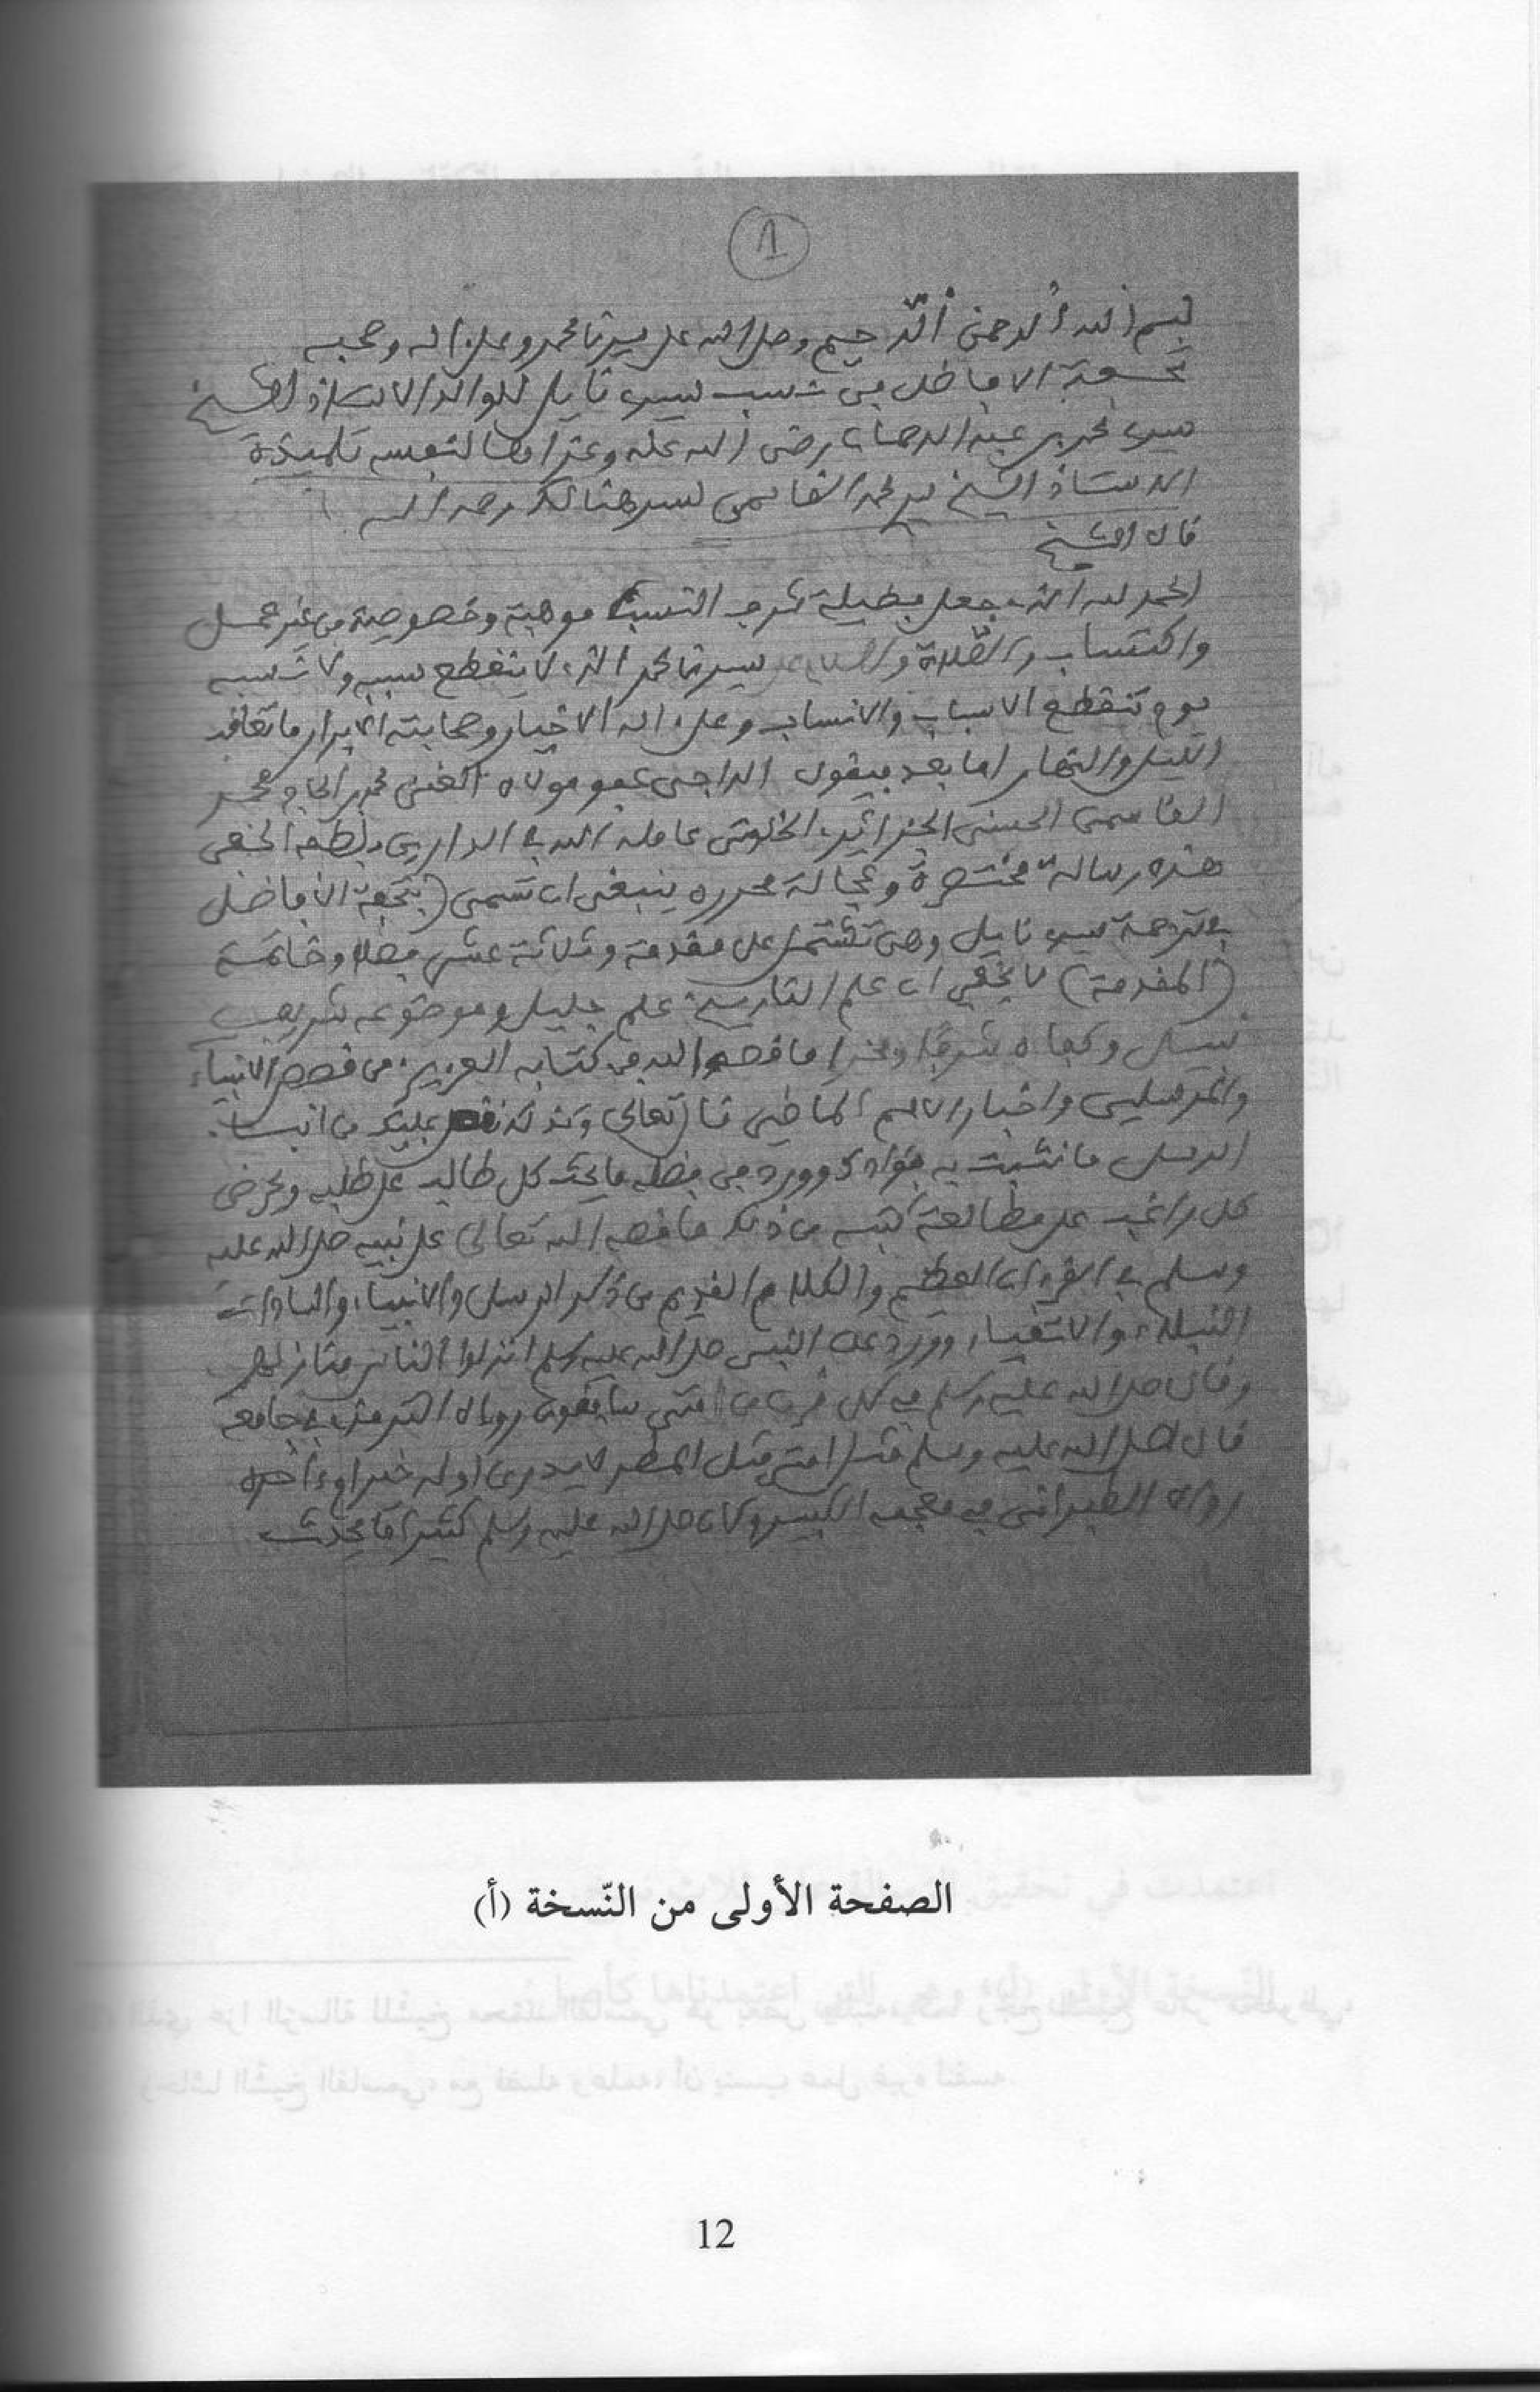 1
بسم الله الرحمن الرحيم وصلى الله على سيدنا محمد وعلى اله وصحبه
تحفة الافاضل في نسب سيدي نايل للوالد الاستاذ الشيخ
سيدي محمد بن عبد الرحمان رضي الله عنه وعزاها لنفسه تلميذه
الاستاذ الشيخ سيدي محمد القاسمي لسر هنالك رحمه الله
قال الشيخ
الحمد لله الذي جعل فضيلة شرف النسب موهبة وخصوصية من غير عمل
واكتساب والصلاة والسلام على سيدنا محمد الذي لا ينقطع سببه ولا نسبه
يوم تنقطع الاسباب والانساب وعلى اله الاخيار وصحابته الابرار ما تعاقب
الليل والنهار اما بعد فيقول الراجي عفو مولاه الغني محمد بن الحاج محمد
القاسمي الحسني الجزائري الخلوتي عامله الله في الدارين بلطفه الخفي
هذه رسالة مختصرة وعجالة محرره ينبغي ان تسمى (بتحفة الافاضل
في ترجمة سيدي نايل وهي تشتمل على مقدمة وثلاثة عشر فصلا وخاتمة
(المقدمة) لا يخفى ان علم التاريخ علم جليل وموضوعه شريف
نبيل وكفاه شرفا وفخرا ما قصه الله في كتابه العزيز من قصص الانبياء
والمرسلين واخبار الامم الماضين قال تعالى وكذلك نقص عليك من انباء
الرسل ما نثبت به فؤادك وورد في فضله ما يحث كل طالب على طلبه ويحرض
كل راغب على مطالعة كتبه من ذلك ما قصه الله تعالى على نبيه صلى الله عليه
وسلم في القرءان العظيم والكلام القديم من ذكر الرسل والانبياء والسادات
النبلاء والاتقياء وورد عن النبي صلى الله عليه وسلم انزلوا الناس منازلهم
وقال صلى الله عليه وسلم في كل قرن من امتي سابقون رواه الترمذي في جامعه
قال صلى الله عليه وسلم مثل امتي مثل المطر لا يدرى اوله خير او ءاخره
رواه الطبراني في معجمه الكبير وكان صلى الله عليه وسلم كثيرا ما يحدث
الصفحة الأولى من النّسخة (أ)
12